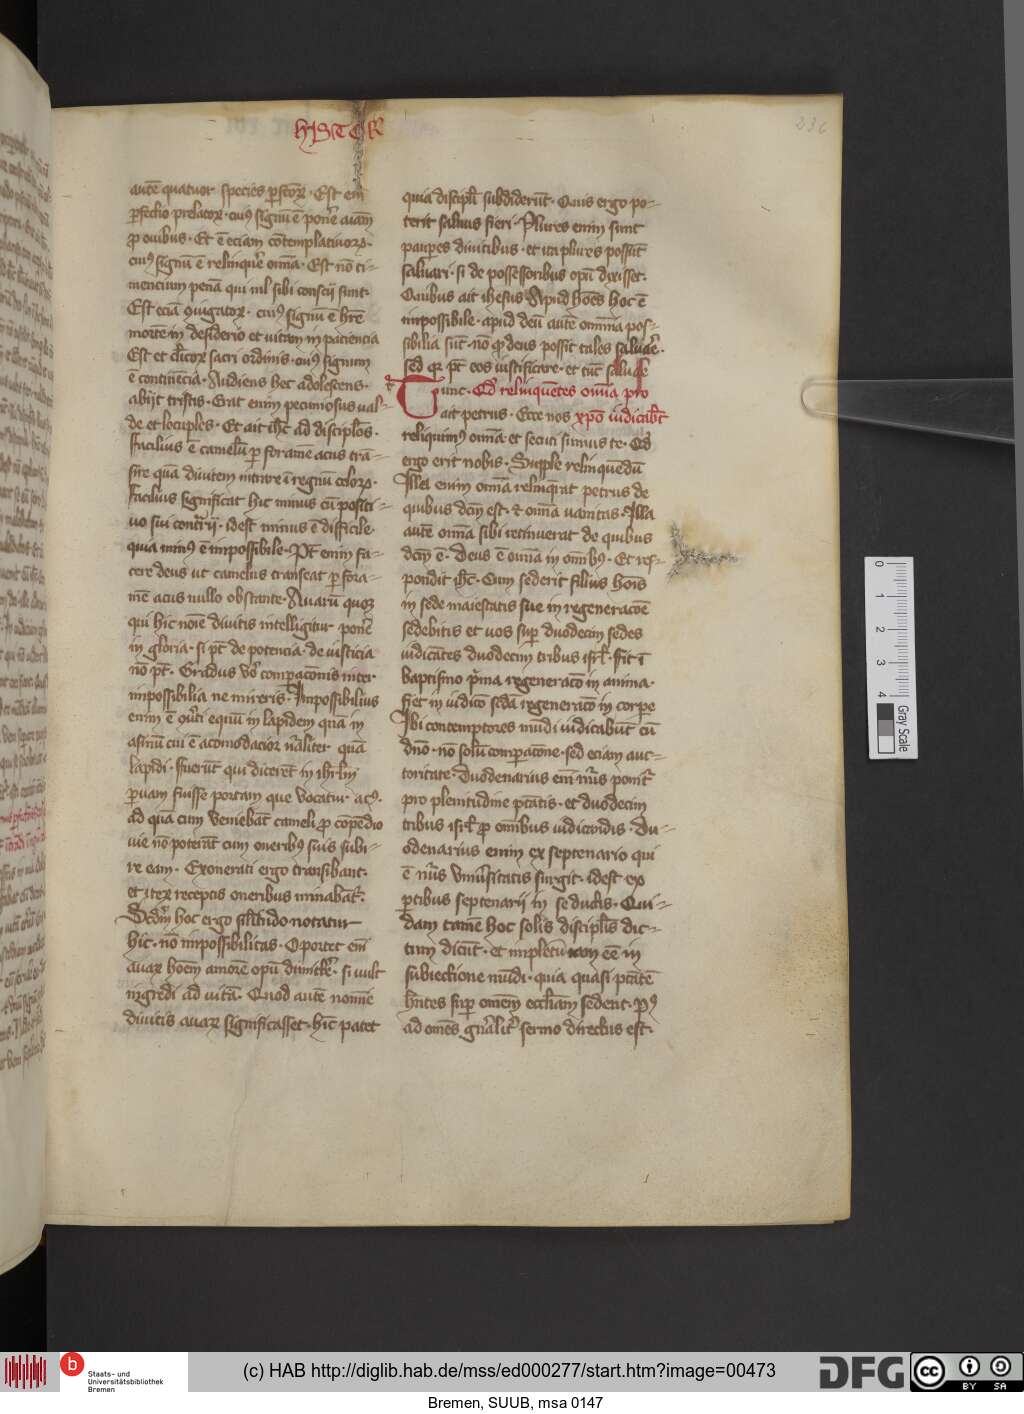 HISTOR
236
autē quatuor species ꝑfectōꝝ. Est em̄
ꝑfectio prelatoꝝ. cuiꝰ signū ē ponē aīam
ꝓ ouibus. Et ē eciam cōtemplatiuoꝝ.
cuiꝰ signū ē relinquē om̄ia. Est nō ti-
mencium penā qui nil sibi conscij sunt.
Est eciā ꝯiugatoꝝ. cuiꝰ signū ē hr̄e
mortē in desiderio et uitam in paciencia
Est et cl̓icoꝝ sacri ordinis. cuiꝰ signum
ē continēcia. Audiens hec adolescens.
abijt tristis. Erat enim pecuniosus ual-
de et locuples. Et ait ih̄c ad discipl̓os.
facilius ē camelū ꝑ foramē acus trā-
sire quā diuitem intrare ī regnū celoꝝ.
facilius significat hic minus cū positi-
uo sui cont̓rij. idest minus ē difficile.
quia minꝰ ē impossibile. Pt̄ enim fa-
cere deus ut camelus transeat ꝑ fora-
mē acus nullo obstante. Auarū quoqꝫ
qui hic noīe diuitis intelligitur ponē
in gloria. si pt̄ de potencia. de iusticia
nō pt̄. Gradus vō comparaconis inter
impossibilia ne mireris. Impossibilius
enim ē ou̓ti equū in lapidem quā in
asinū cui ē acomodacior nāliter quā
lapidi. Fuer̄t qui dicerēt in ihrl̄m
ꝑuam fuisse portam que vocatur acꝰ.
ad quā cum veniebāt cameli ꝓ cōpēdio
uie nō poterāt cum oneribꝰ suis subi-
re eam. Exonerati ergo transibant.
et iteꝝ receptis oneribus minabāt̄.
Scdm̄ hoc ergo silitudo notatur
hic. nō impossibilitas. Oportet em̄
auaꝝ hoēm amorē opū dimittē. si uult
ingredi ad uitā. Quod autē nomīe
diuitis auaꝝ significasset. hīc patet
quia discipl̓i subdiderūt. Quis ergo po-
terit saluus fieri. Plures enim sunt
pauꝑes diuitibus. et ita plures possūt
saluari. si de possessoribus opū dixisset.
Quibus ait ihesus Apud hoēs hoc ē
impossibile. apud deū autē omnia pos-
sibilia sūt. nō qꝫ deus possit tales saluare.
sed qꝫ pt̄ eos iustificare. et tūc saluare
Tunc. Qd̓ relinquētes om̄ia pro
ait petrus. Ecce nos xp̄o iudicabūt
reliquimꝰ om̄ia et secuti sumus te. Qd̓
ergo erit nobis. Supple relinquēdū
Illa enim om̄ia relinq̄rat petrus de
quibus dcm̄ est. et om̄ia uanitas. Illa
autē om̄ia sibi retinuerat de quibus
dcm̄ ē. Deus ē om̄ia in om̄ibꝰ. Et res-
pondit ih̄c. Cum sederit filius hoīs
in sede maiestatis sue in regeneracōe
sedebitis et uos suꝑ duodecim sedes
iudicātes duodecim tribus isrl̄. Fit ī
baptismo p̄ma regeneracō in anima.
fiet in iudicō sc̄da regeneracō in corpe
Ibi contemptores mūdi iudicabūt cū
dn̄o. nō solū comparacōne. sed eciam auc-
toritate. Duodenarius em̄ nr̄us ponit̄
pro plenitudine ptātis. et duodecim
tribus isrl̄ ꝓ omībus iudicandis. Du-
odenarius enim ex septenario qui
ē nr̄us vniu̓sitatis surgit. idest ex
ꝑtibus septenarij in se ductis. Qui-
dam tamē hoc solis discipl̓is dic-
tum dicūt. et impletū iam eē in
subiectione mūdi. quia quasi ptātē
hn̄tes suꝑ omēm eccl̓iam sedent. Pꝰ
ad omēs gn̄alit̓ sermo directus est.
0
1
2
3
4
Gray Scale
b Staats- und
Universitätsbibliothek
Bremen
(c) HAB http://diglib.hab.de/mss/ed000277/start.htm?image=00473
DFG
cc BY SA
Bremen, SUUB, msa 0147